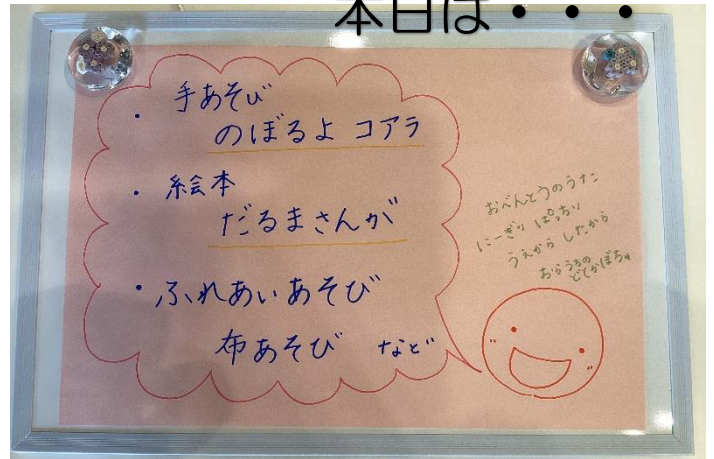 本日は・・・
・手あそび
のぼるよ コアラ
・絵本
だるまさんが
・ふれあいあそび
布あそび など
おべんとうのうた
にーぎり ぱっちり
うえから したから
おらうちの
どてかぼちゃ